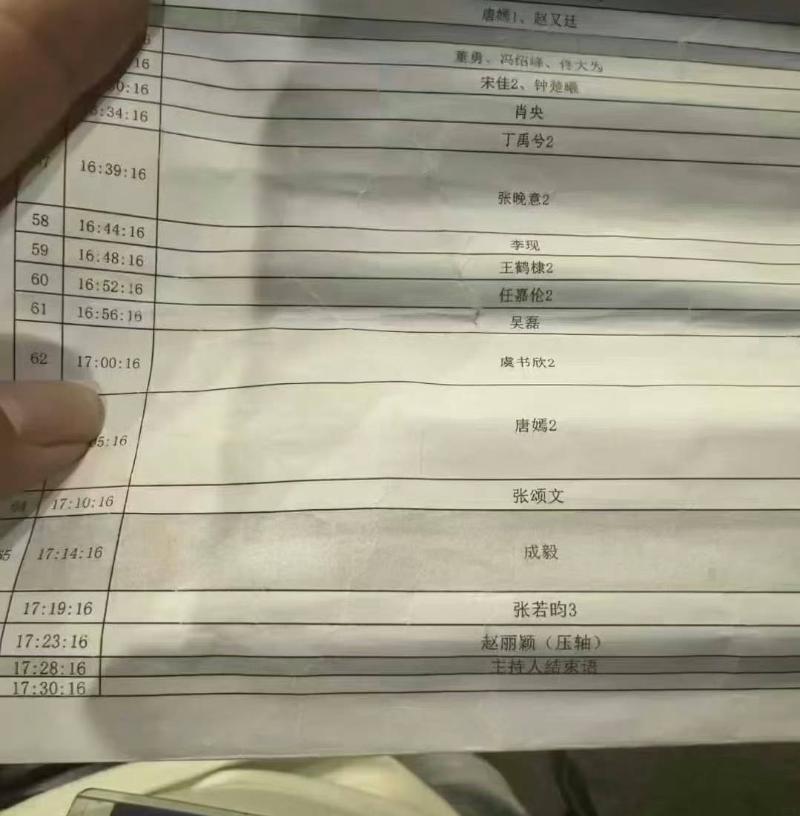 唐嫣1、赵又廷
16
16 董勇、冯绍峰、佟大为
0:16 宋佳2、钟楚曦
:34:16 肖央
丁禹兮2
7 16:39:16
张晚意2
58 16:44:16 李现
59 16:48:16 王鹤棣2
60 16:52:16 任嘉伦2
61 16:56:16 吴磊
62 17:00:16 虞书欣2
05:16 唐嫣2
64 17:10:16 张颂文
65 17:14:16 成毅
17:19:16 张若昀3
17:23:16 赵丽颖（压轴）
17:28:16 主持人结束语
17:30:16